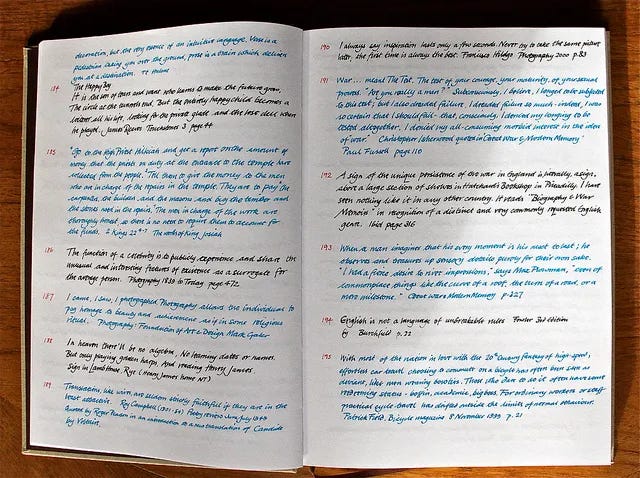 decoration, but the very essence of an intuitive language. Verse is a
pedestrian taking you over the ground, prose is a train which delivers
you at a destination. TE Hulme
184 The Happy Boy
It is the son of tears and want who learns to make the future grow,
The circle at the tunnel's end. But the utterly happy child becomes a
all his life, looking for the private glade and the lost dell where
he played. James Reeves Touchstones 3 page 44
185 "Go to the High Priest Hilkiah and get a report on the amount of
money that the priests on duty at the entrance to the temple have
collected from the people. Tell them to give the money to the men
who are in charge of the repairs in the temple. They are to pay the
carpenters, the builders and the masons and buy the timber and
the stones used in the repairs. The men in charge of the work are
thoroughly honest, so there is no need to require them to account for
the funds. 2 Kings 22 4-7 The words of King Josiah
186 The function of a celebrity is to publicly experience and share the
unusual and interesting features of existence as a surrogate for
the average person. Photography 1839 to Today page 472
187 I came, I saw, I photographed. Photography allows the individual to
pay homage to beauty and achievement as if in some religious
ritual. Photography: Foundation of Art & Design Mark Galer
188 In heaven there'll be no algebra, No learning dates or names.
But only playing golden harps, And reading Henry James.
Sign in Lamb House, Rye (Henry James home NT)
189 Translations, like wives, are seldom strictly faithful if they are in the
least attractive. Roy Campbell (1901-57) Poetry review June July 1949
Quoted by Roger Pearson in the introduction to a new translation of Candide
by Voltaire
190 I always say inspiration lasts only a few seconds. Never try to take the same picture
later, the first time is always the best. Francisco Hidalgo Photography 2000 p.83
191 War... meant The Test. The test of your courage, your maturity, of your sexual
prowess. "Are you really a man?" Subconsciously, I believe, I longed to be subjected
to this test; but I also dreaded failure. I dreaded failure so much - indeed, I was
so certain that I should fail - that, consciously, I denied my longing to be
tested altogether. I denied my all-consuming morbid interest in the idea
of war." Christopher Isherwood quoted in Great War & Modern Memory
Paul Fussell page 110
192 A sign of the unique persistence of the war in England is literally, a sign,
above a large section of shelves in Hatchard's Bookshop in Piccadilly. I have
seen nothing like it in any other country. It reads "Biography & War
Memoirs" in recognition of a distinct and very commonly requested English
genre. Ibid page 316
193 When a man imagines that his every moment is his next to last, he
observes and treasures up sensory details purely for their own sake.
"I had a fierce desire to rivet impressions," says Max Plowman, "even of
commonplace things like the curve of a roof, the turn of a road, or a
mere milestone." Great War & Modern Memory p.327
194 English is not a language of unbreakable rules Fowler 3rd edition
by Burchfield p.72
195 With most of the nation in love with the 20th Century fantasy of high-speed,
effortless car travel choosing to commute on a bicycle has often been seen as
deviant, like men wearing bonnets. Those who dare to do it often have some
redeeming status - boffin, academic, big boss. For ordinary workers or staff
practical cycle-travel has drifted outside the limits of normal behaviour.
Patrick Field, Bicycle magazine 8 November 1999 p.21